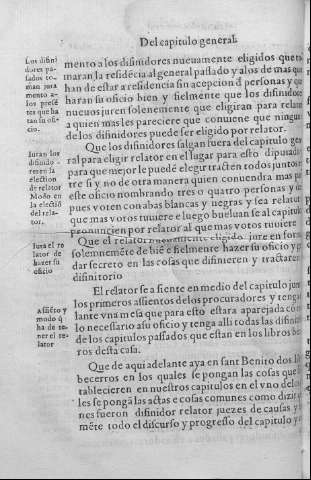 Del capitulo general.
Los disini
dores pa-
sados to-
man jura
mento a-
los presẽ
tes que ha
ran su ofi-
cio.
mento a los difinidores nueuamente eligidos que to
maran la residẽcia al general passado y a los de mas que
han de estar a residencia sin acepcion đ personas y que
haran su oficio bien y fielmente que los difinidores
nueuos juren solenemente que eligiran para relator
a quien mas les pareciere que conuiene que ningun
de los difinidores puede ser eligido por relator.
Juran los
difinido-
res en la
election
de relator
Modo en
la electiõ
del rela-
tor.
Que los difinidores salgan fuera del capitulo gen
ral para eligir relator en el lugar para esto dipuiado
para que mejor le puedẽ elegir tracten todos juntos
tre si y no de otra manera quien conuendra mas para
este oficio nombrando tres o quatro personas y des
pues voten con abas blancas y negras y sea relator
que mas votos tuuiere y luego bueluan se al capitulo
pronuncien por relator al que mas votos tuuiere
Jura el re
lator de
hazer su
oficio
Que el relator nueuamente eligido, jure en forma
solemnemẽte de biẽ e fielmente hazer su oficio y
dar secreto en las cosas que difinieren y tractaren
difinitorio
Assiẽto y
modo q̃
ha de te-
ner el re-
lator
El relator se a siente en medio del capitulo jun
los primeros assientos delos procuradores y tenga
lante vna mesa que para esto estara aparejada co
lo necessario a su oficio y tenga alli todas las difini
de los capitulos passados que estan en los libros be
ros desta casa.
Que de aqui adelante aya en sant Benito dos li
becerros en los quales se pongan las cosas que
tablecieren en nuestros capitulos en el vno delos
les se pongã las actas e cosas comunes como dizir
nes fueron difinidor relator juezes de causas y
mẽte todo el discurso y progresso del capitulo y